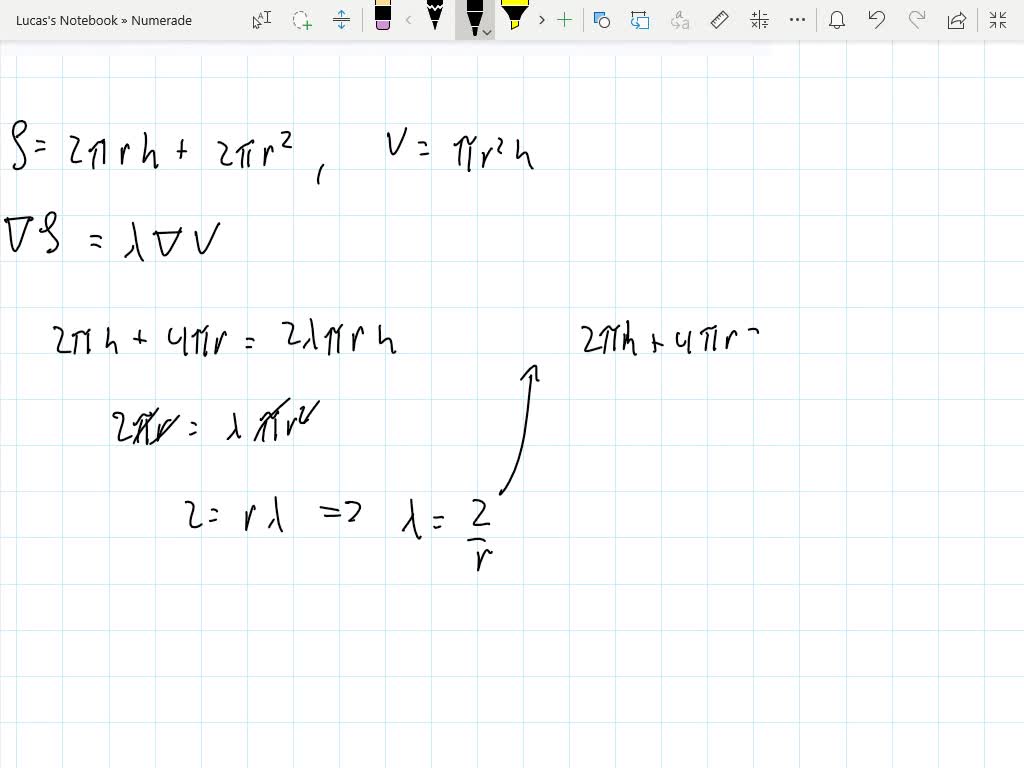 Lucas's Notebook » Numerade
S = 2πrh + 2πr², V = πr²h
∇S = λ∇V
2πh + 4πr = 2λπrh
2πh + 4πr =
2πr = λπr²
2 = rλ => λ = 2/r